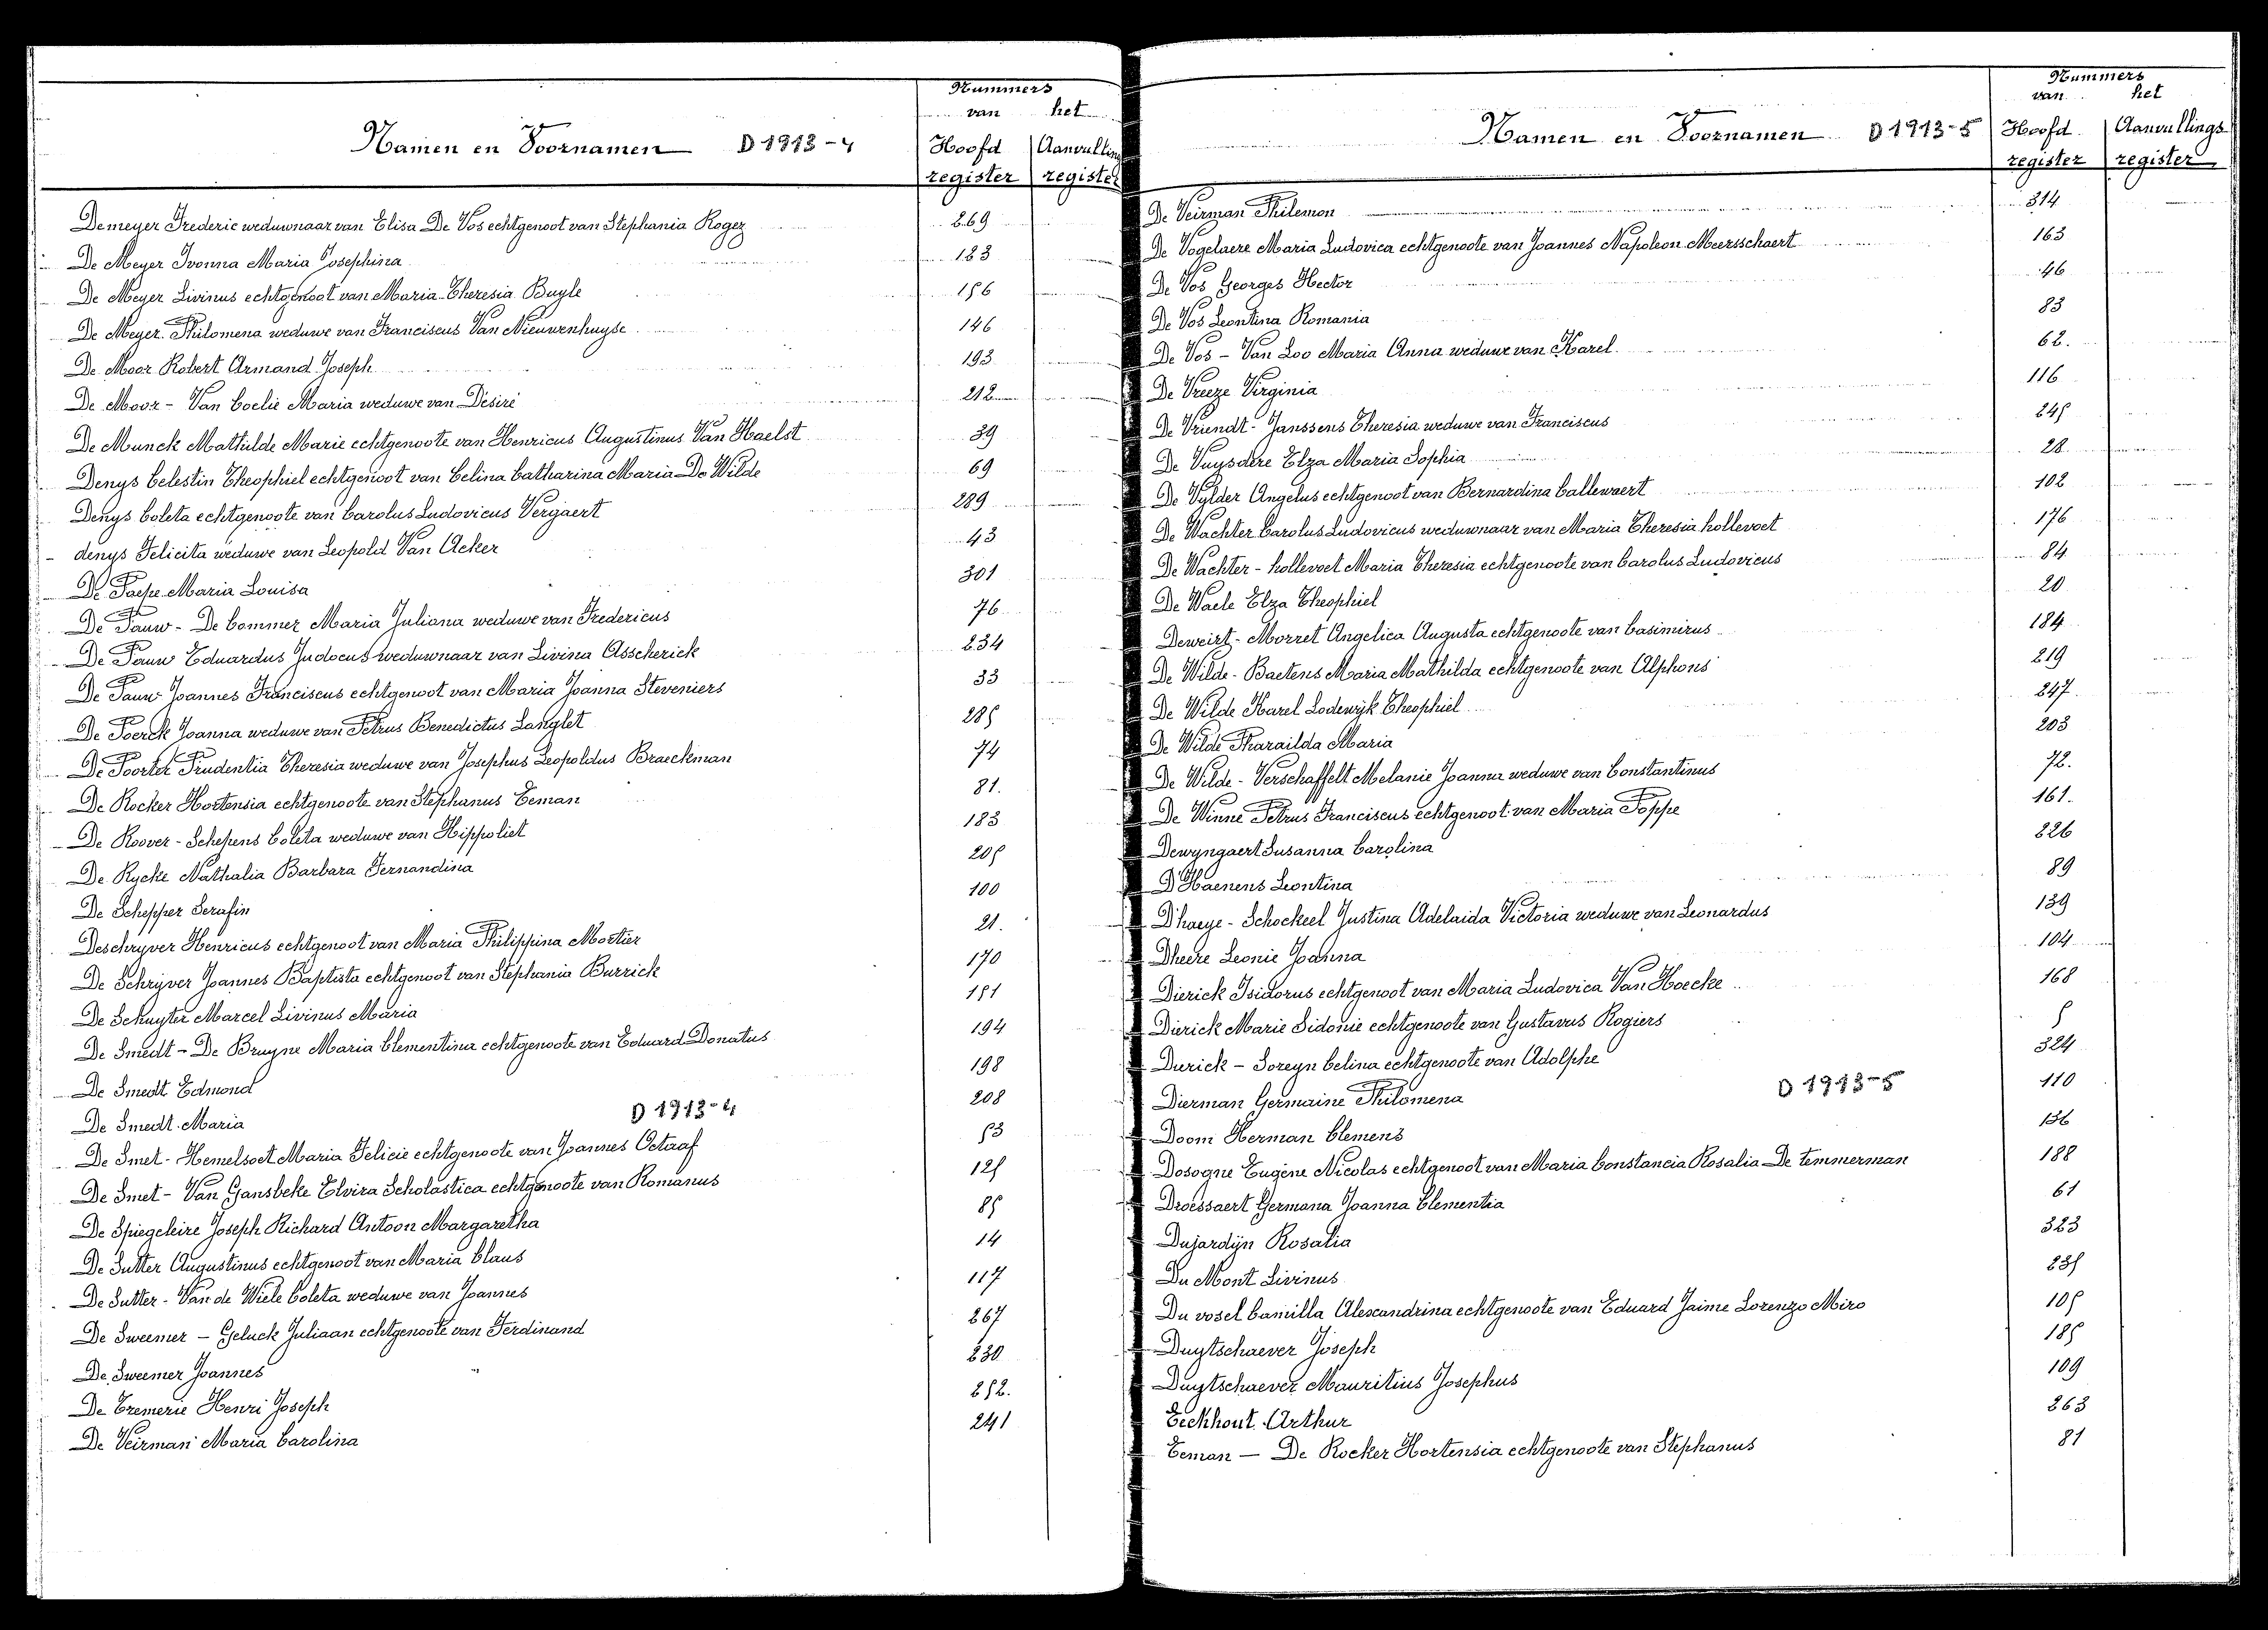 Nummers
van het
Namen en Voornamen D 1913-4 Hoofd Aanvulling
register register
Demeyer Frederic weduwnaar van Elisa De Vos echtgenoot van Stephania Roger 269
De Meyer Ivonna Maria Josephina 123
De Meyer Livinus echtgenoot van Maria-Theresia Buyle 156
De Meyer Philomena weduwe van Franciscus Van Nieuwenhuyse 146
De Moor Robert Armand Joseph 193
De Moor - Van Coelie Maria weduwe van Désiré 212
De Munck Mathilde Marie echtgenoote van Henricus Augustinus Van Haelst 39
Denys Celestin Theophiel echtgenoot van Celina Catharina Maria De Wilde 69
Denys Coleta echtgenoote van Carolus Ludovicus Vergaert 289
denys Felicita weduwe van Leopold Van Acker 43
De Paepe Maria Louisa 301
De Pauw - De Commer Maria Juliana weduwe van Fredericus 76
De Pauw Eduardus Judocus weduwnaar van Livina Asscherick 234
De Pauw Joannes Franciscus echtgenoot van Maria Joanna Steveniers 33
De Poerck Joanna weduwe van Petrus Benedictus Langlet 285
De Poorter Prudentia Theresia weduwe van Josephus Leopoldus Braeckman 74
De Rocker Hortensia echtgenoote van Stephanus Eeman 81.
De Roover - Schepens Coleta weduwe van Hippoliet 183
De Rycke Nathalia Barbara Fernandina 205
De Schepper Serafin 100
Deschryver Henricus echtgenoot van Maria Philippina Mortier 21.
De Schrijver Joannes Baptista echtgenoot van Stephania Burrick 170
De Schuyter Marcel Livinus Maria 151
De Smedt - De Bruyne Maria Clementina echtgenoote van Eduard Donatus 194
De Smedt Edmond 198
De Smedt Maria 208
D 1913-4
De Smet - Hemelsoet Maria Felicie echtgenoote van Joannes Octaaf 53
De Smet - Van Gansbeke Elvira Scholastica echtgenoote van Romanus 125
De Spiegeleire Joseph Richard Antoon Margaretha 85
De Sutter Augustinus echtgenoot van Maria Claus 14
De Sutter - Van de Wiele Coleta weduwe van Joannes 117
De Sweemer - Geluck Juliaan echtgenoote van Ferdinand 267
De Sweemer Joannes 230
De Tremerie Henri Joseph 252.
De Veirman Maria Carolina 241
Nummers
van het
Namen en Voornamen D 1913-5 Hoofd Aanvullings
register register
De Veirman Philemon 314
De Vogelaere Maria Ludovica echtgenoote van Joannes Napoleon Meersschaert 163
De Vos Georges Hector 46
De Vos Leontina Romania 83
De Vos - Van Loo Maria Anna weduwe van Karel 62.
De Vreeze Virginia 116
De Vriendt - Janssens Theresia weduwe van Franciscus 245
De Vuysdere Elza Maria Sophia 28
De Vylder Angelus echtgenoot van Bernardina Callewaert 102
De Wachter Carolus Ludovicus weduwnaar van Maria Theresia hollevoet 176
De Wachter - hollevoet Maria Theresia echtgenoote van Carolus Ludovicus 84
De Waele Elza Theophiel 20
Deweirt - Morret Angelica Augusta echtgenoote van Casimirus 184
De Wilde - Baetens Maria Mathilda echtgenoote van Alphons 219
De Wilde Karel Lodewijk Theophiel 247.
De Wilde Pharailda Maria 203
De Wilde - Verschaffelt Melanie Joanna weduwe van Constantinus 72.
De Winne Petrus Franciscus echtgenoot van Maria Poppe 161.
Dewyngaert Susanna Carolina 226
D'Haenens Leontina 89
D'haeye - Schockeel Justina Adelaida Victoria weduwe van Leonardus 139
Dheere Leonie Joanna 104
Dierick Isidorus echtgenoot van Maria Ludovica Van Hoecke 168
Dierick Marie Sidonie echtgenoote van Gustavus Rogiers 5
Durick - Soreyn Celina echtgenoote van Adolphe 324
Dierman Germaine Philomena 110
D 1913-5
Doom Herman Clemens 136
Dosogne Eugène Nicolas echtgenoot van Maria Constancia Rosalia De Temmerman 188
Droessaert Germana Joanna Clementia 61
Dujardijn Rosalia 323
Du Mont Livinus 235
Du vosel Camilla Alexandrina echtgenoote van Eduard Jaime Lorenzo Miro 105
Duytschaever Joseph 185
Duytschaever Mauritius Josephus 109
Eeckhout Arthur 263
Eeman - De Rocker Hortensia echtgenoote van Stephanus 81